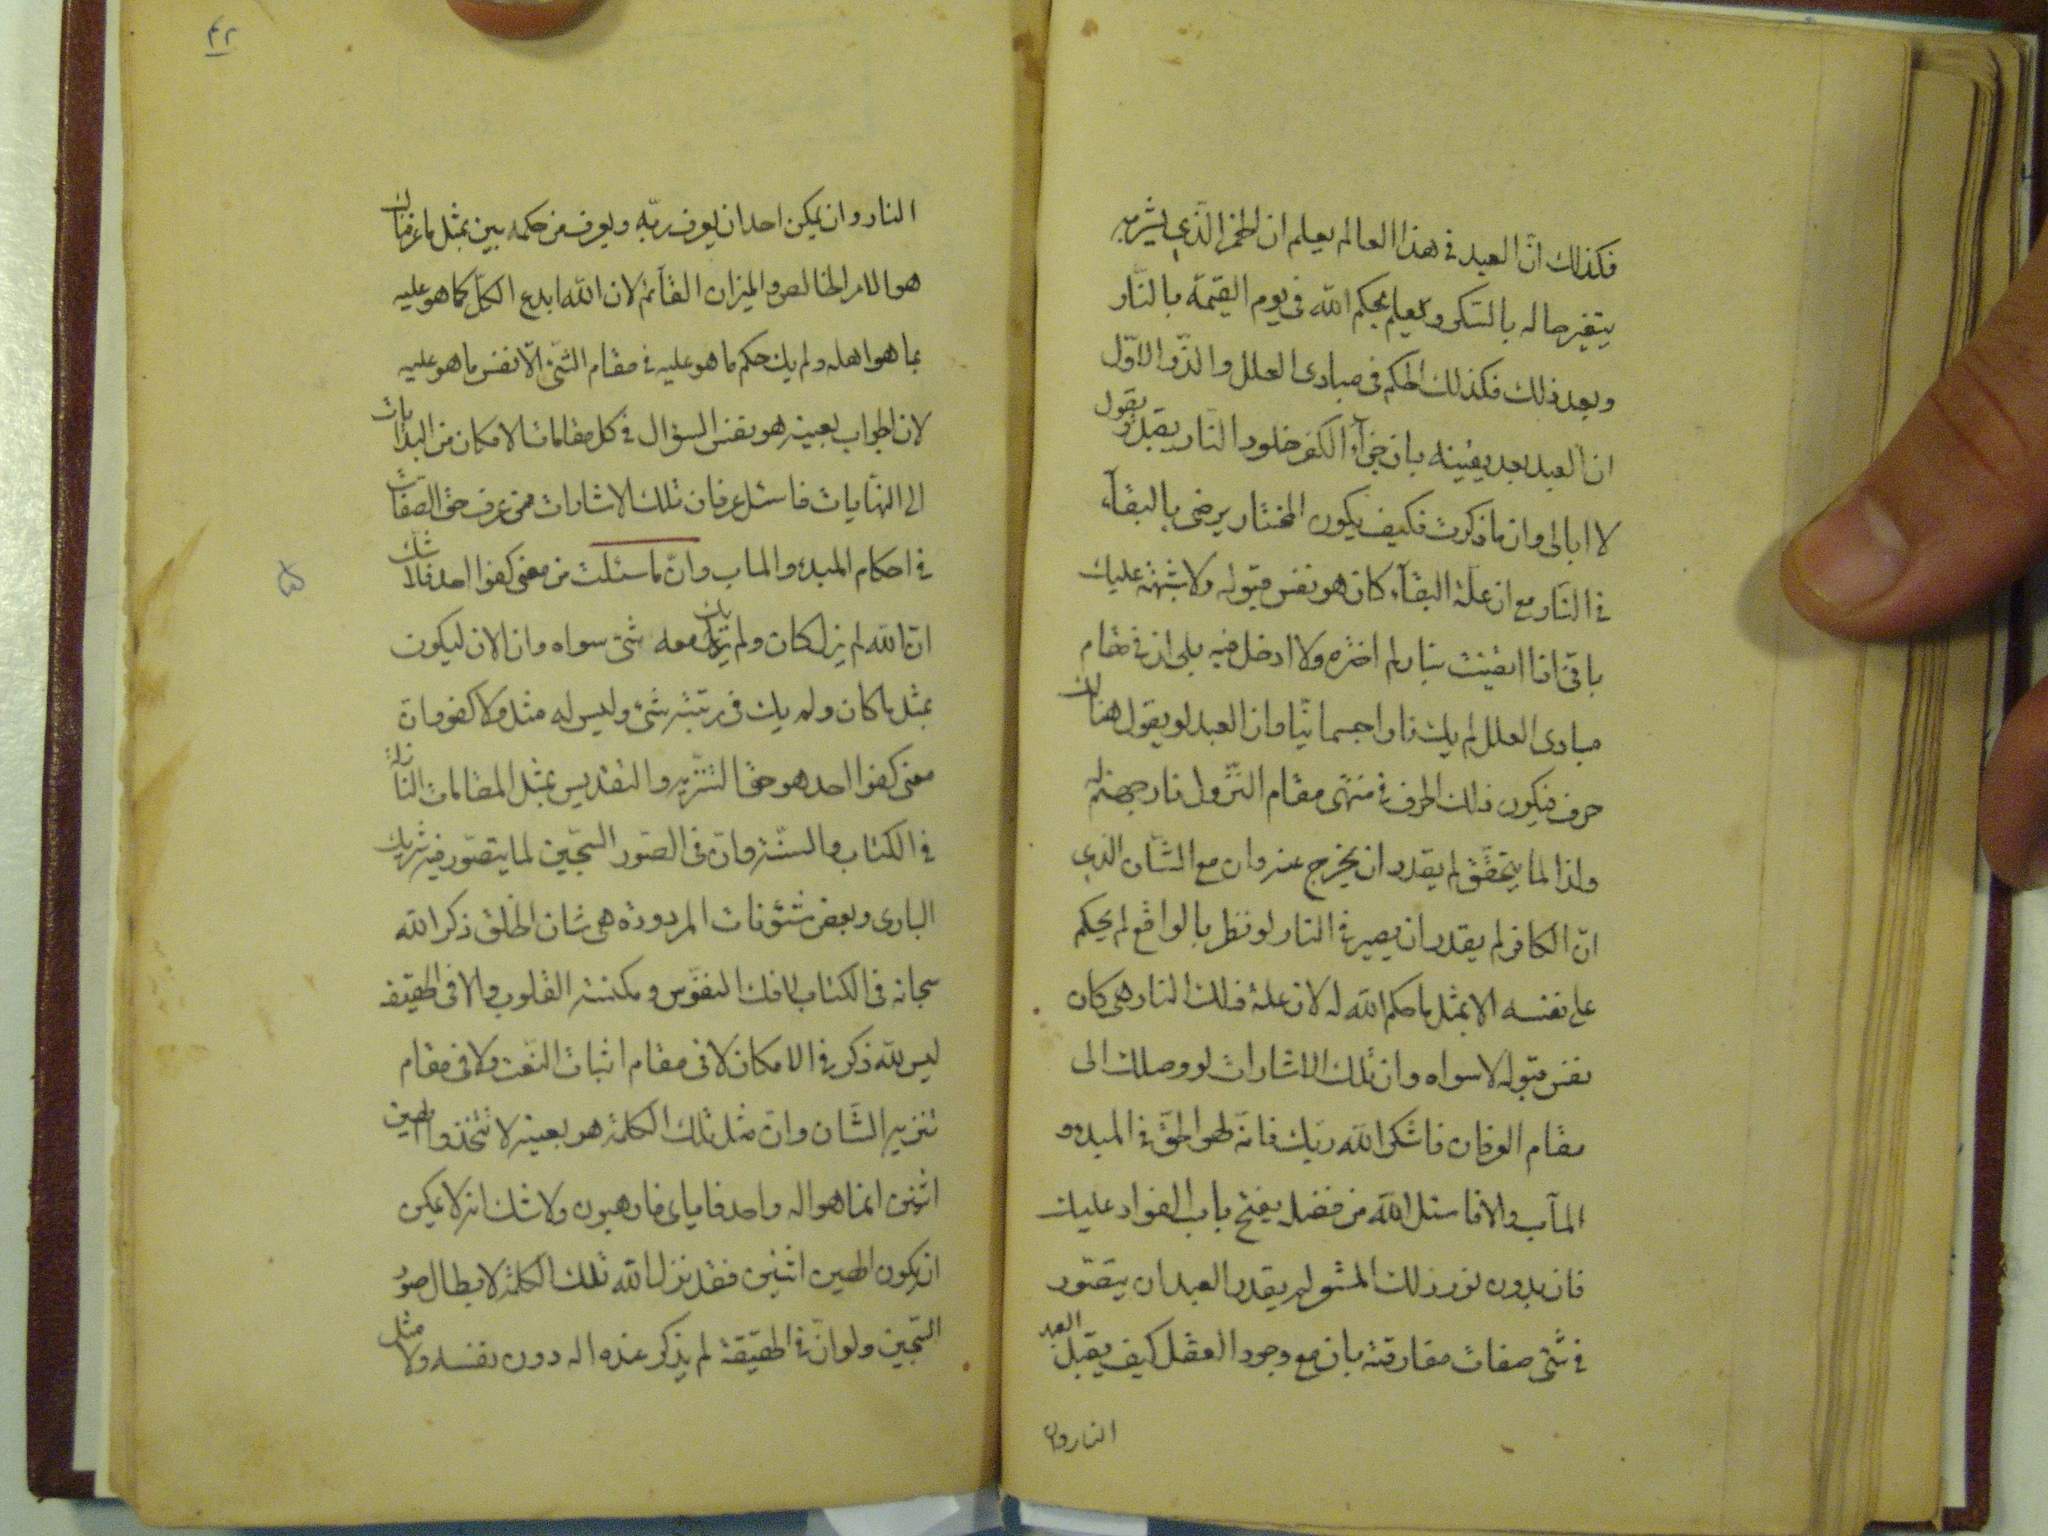 فكذلك انّ العبد في هذا العالم يعلم ان الخمر الّذي يشربه
يتغير حاله بالسكر ويعلم بحكم الله في يوم القيمة بالنّار
وبعد ذلك فكذلك الحكم في مبادى العلل والذّر الاوّل
ان العبد بعد يقينه بان جزآء الكفر خلود النّار يقبل ويقول
لا ابالى وان ما ذكرت فكيف يكون المختار يرضى بالبقآء
في النّار مع ان علّة البقآء كان هو نفس قبوله ولا يشتبه عليك
باقى انا ايقنت بنار لم اختره ولا ادخل فيه بلى ان في مقام
مبادى العلل لم يك نارا جسمانيّا وان العبد لو يقول هنالك
حرف فيكون ذلك الحرف في منتهى مقام النّزول نار جهنم له
ولذا لما يتحقّق لم يقدر ان يخرج عنه وان مع الشّأن الذي
انّ الكافر لم يقدر ان يصير في النار لو نظر بالواقع لم يحكم
على نفسه الا بمثل ما حكم الله له لان علة فلك النار هي كان
نفس قبوله لا سواه وان تلك الاشارات لو وصلت الى
مقام العرفان فاشكر الله ربك فانّه لهو الحقّ في المبدء و
المآب والا فاسئل الله من فضله يفتح باب الفؤاد عليك
فان بدون نور ذلك المشعر لم يقدر العبد ان يتصّور
في شئ صفات مفارقته بان مع وجود العقل كيف يقبل العبد
النار وان
٤٢
النار وان يمكن احد ان يعرف ربّه ويعرف من حكمه بين بمثل ما عرفناك
هو الامر الخالص والميزان القآئم لان الله ابدع الكلّ كما هو عليه
بما هو اهله ولم يك حكم ما هو عليه في مقام الشئ الّا نفس ما هو عليه
لان الجواب بعينه هو نفس السؤال في كل مقامات الامكان من البدايات
الى النهايات فاسئل عرفان تلك الاشارات ممن عرف حق الصّفات
في احكام المبدء والماب وانّ ما سئلت من معنى كفوا احد فلا شك
انّ الله لم يزل كان ولم يك معه شئ سواه وان الان ليكون
بمثل ما كان ولم يك في رتبته شئ وليس له مثل ولا كفو وان
معنى كفوا احد هو حق التنزيه والتقديس بمثل المقامات النازلة
في الكتاب والسنّة وان في الصّور السّجين لما يتصّور فيه شريك
البارى وبعض شئونات المردودة هي شان الخلق ذكر الله
سبحانه في الكتاب لافك النفوس ومكنسة القلوب والا في الحقيقة
ليس لله ذكر في الامكان لا في مقام اثبات النعت ولا في مقام
تنزيه الشّأن وانّ مثل تلك الكلمة هو بعينه لا تتّخذوا الهين
اثنين انما هو اله واحد فاياى فارهبون ولا شك انه لا يمكن
ان يكون الهين اثنين فقد نزل الله تلك الكلمة لابطال صور
السّجين ولو انّ في الحقيقة لم يذكر عنده اله دون نفسه ولا مثل